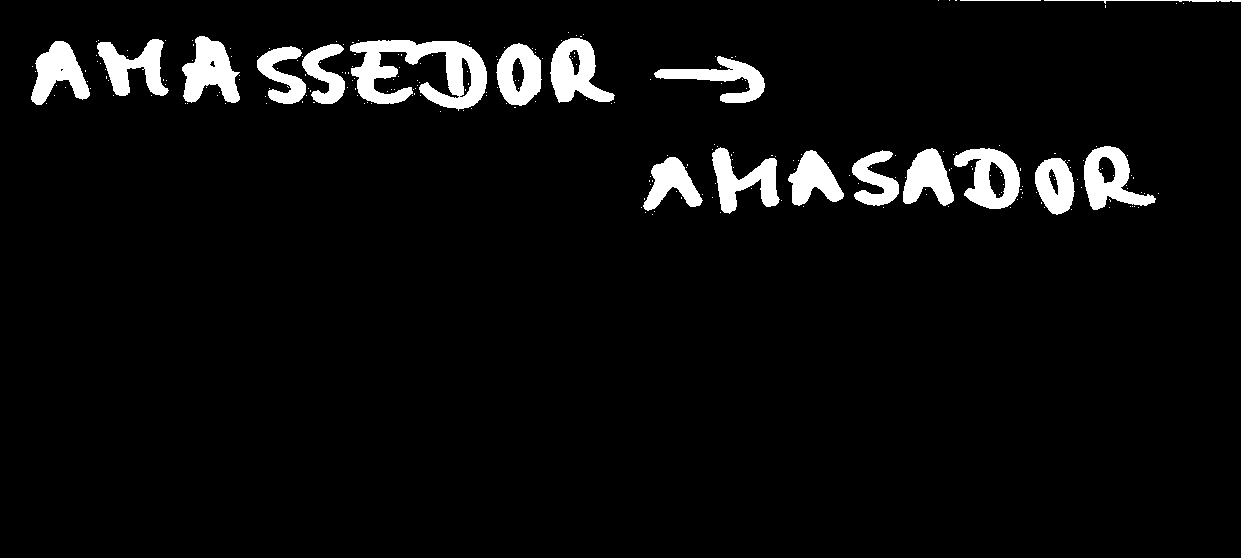 AMASSEDOR →
AMASADOR